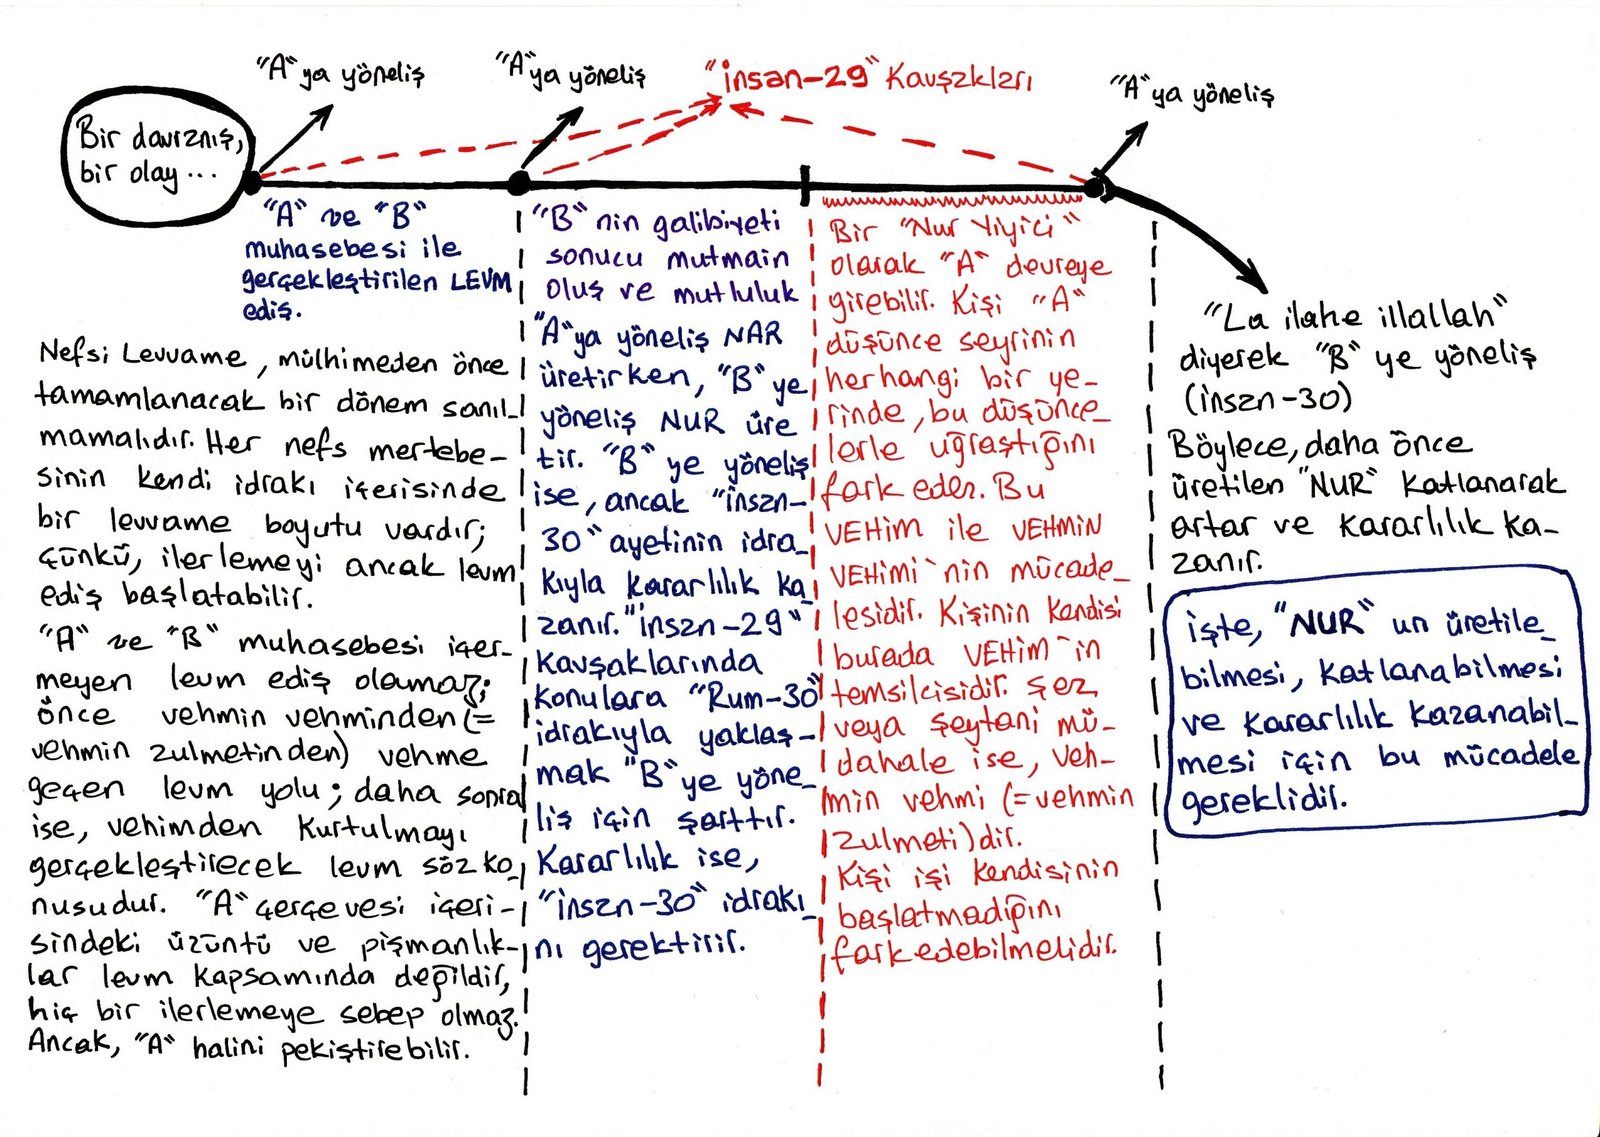 "A"ya yöneliş
"A"ya yöneliş
"İnsan-29" Kavşakları
"A"ya yöneliş
Bir davranış,
bir olay...
"A" ve "B"
muhasebesi ile
gerçekleştirilen LEVM
ediş.
Nefsi Levvame, mülhimeden önce
tamamlanacak bir dönem sanıl_
mamalıdır. Her nefs mertebe-
sinin kendi idrakı içerisinde
bir levvame boyutu vardır;
çünkü, ilerlemeyi ancak levm
ediş başlatabilir.
"A" ve "B" muhasebesi içer-
meyen levm ediş olamaz;
önce vehmin vehminden (=
vehmin zulmetinden) vehme
geçen levm yolu; daha sonra
ise, vehimden kurtulmayı
gerçekleştirecek levm söz ko_
nusudur. "A" çerçevesi içeri-
sindeki üzüntü ve pişmanlık-
lar levm kapsamında değildir,
hiç bir ilerlemeye sebep olmaz.
Ancak, "A" halini pekiştirebilir.
"B"nin galibiyeti
sonucu mutmain
oluş ve mutluluk
"A"ya yöneliş NAR
üretirken, "B"ye
yöneliş NUR üre
tir. "B"ye yöneliş
ise, ancak "insan-
30" ayetinin idra_
kıyla kararlılık ka_
zanır. "İnsan-29"
Kavşaklarında
konulara "Rum-30"
idrakıyla yaklaş-
mak "B"ye yöne_
liş için şarttır.
Kararlılık ise,
"İnsan-30" idrakı_
nı gerektirir.
Bir "Nur Yiyici"
olarak "A" devreye
girebilir. Kişi "A"
düşünce seyrinin
herhangi bir ye-
rinde, bu düşünce_
lerle uğraştığını
fark eder. Bu
VEHİM ile VEHMİN
VEHİMİ'nin mücade_
lesidir. Kişinin kendisi
burada VEHİM'in
temsilcisidir. Şer
veya şeytani mü-
dahale ise, veh-
min vehmi (=vehmin
zulmeti)dir.
Kişi işi kendisinin
başlatmadığını
fark edebilmelidir.
"La ilahe illallah"
diyerek "B"ye yöneliş
(insan-30)
Böylece, daha önce
üretilen "NUR" katlanarak
artar ve kararlılık ka-
zanır.
İşte, "NUR" un üretile_
bilmesi, katlanabilmesi
ve kararlılık kazanabil-
mesi için bu mücadele
gereklidir.